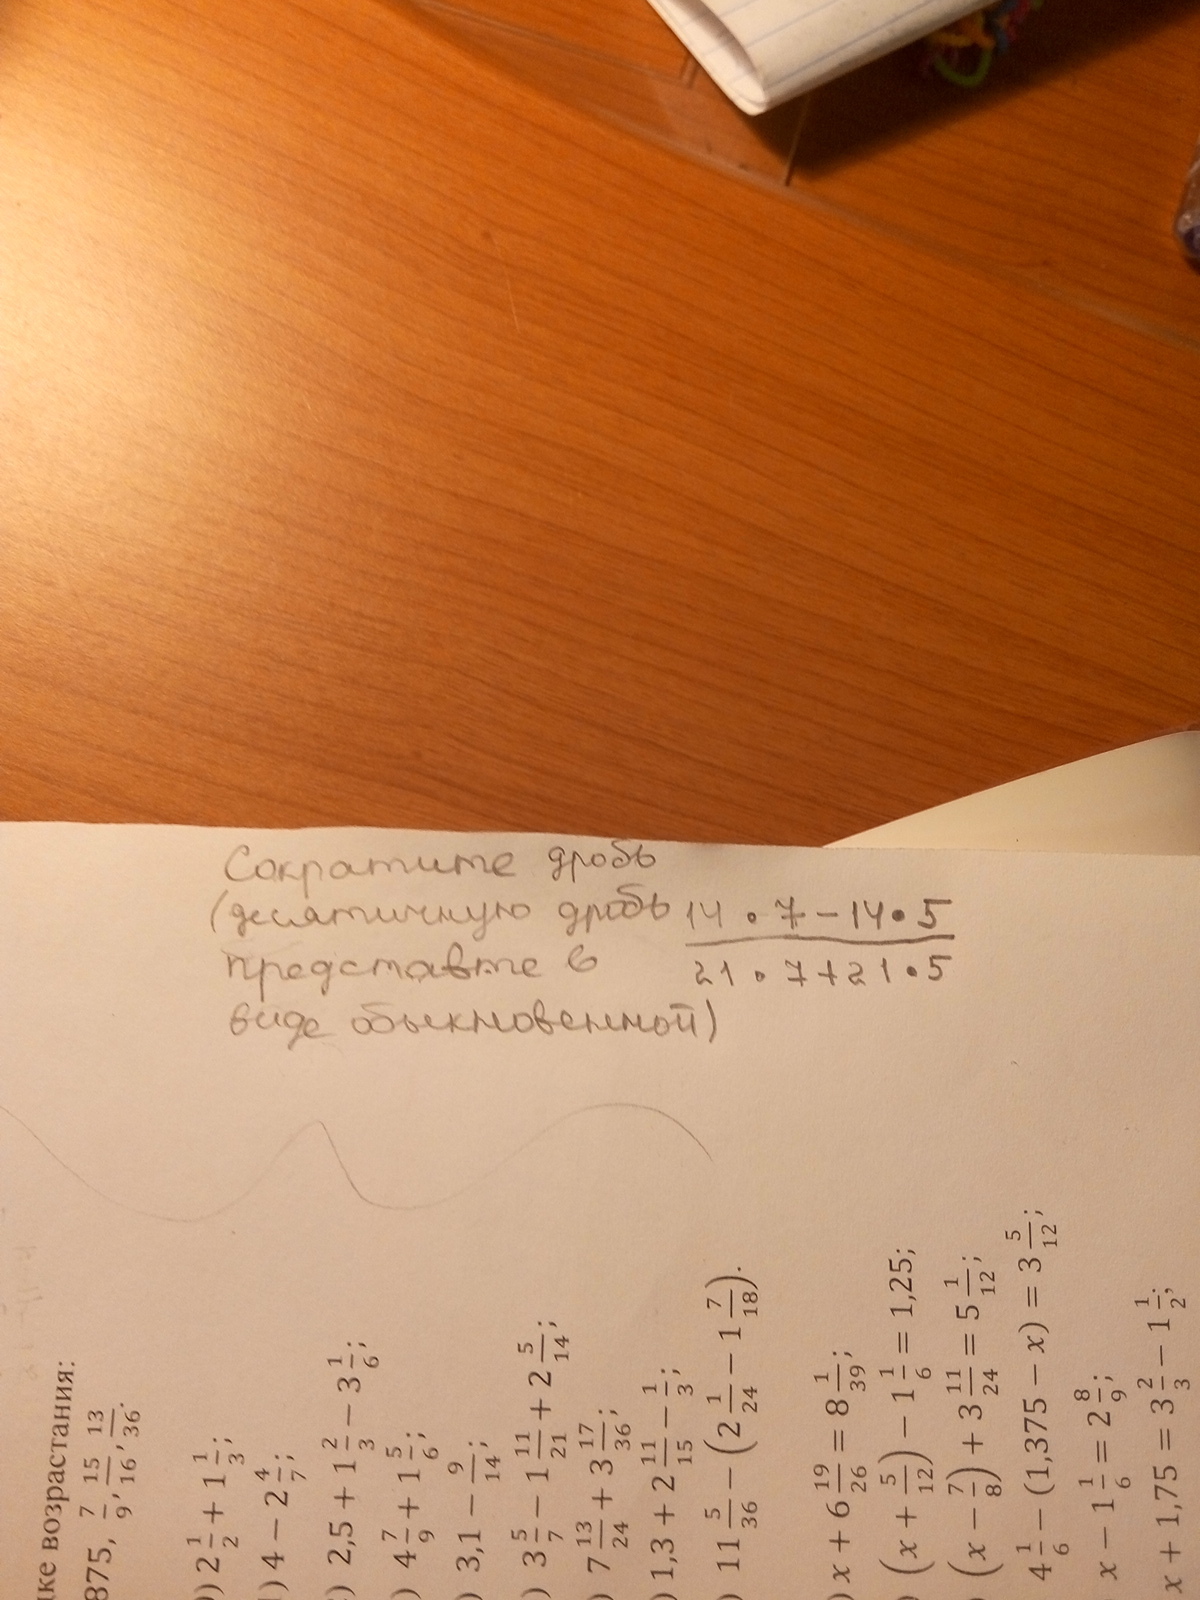 Сократите дробь
(десятичную дробь
представте в
виде обыкновенной)
14 • 7 – 14 • 5
21 • 7 + 21 • 5
возрастания:
875, 7/9, 15/16, 13/36.
) 2 1/2 + 1 1/3;
) 4 – 2 4/7;
) 2,5 + 1 2/3 – 3 1/6;
) 4 7/9 + 1 5/6;
) 3,1 – 9/14;
) 3 5/7 – 1 11/21 + 2 5/14;
) 7 13/24 + 3 17/36;
) 1,3 + 2 11/15 – 1/3;
) 11 5/36 – (2 1/24 – 1 7/18).
) x + 6 19/26 = 8 1/39;
) (x + 5/12) – 1 1/6 = 1,25;
(x – 7/8) + 3 11/24 = 5 1/12;
4 1/6 – (1,375 – x) = 3 5/12;
x – 1 1/6 = 2 8/9;
x + 1,75 = 3 2/3 – 1 1/2;